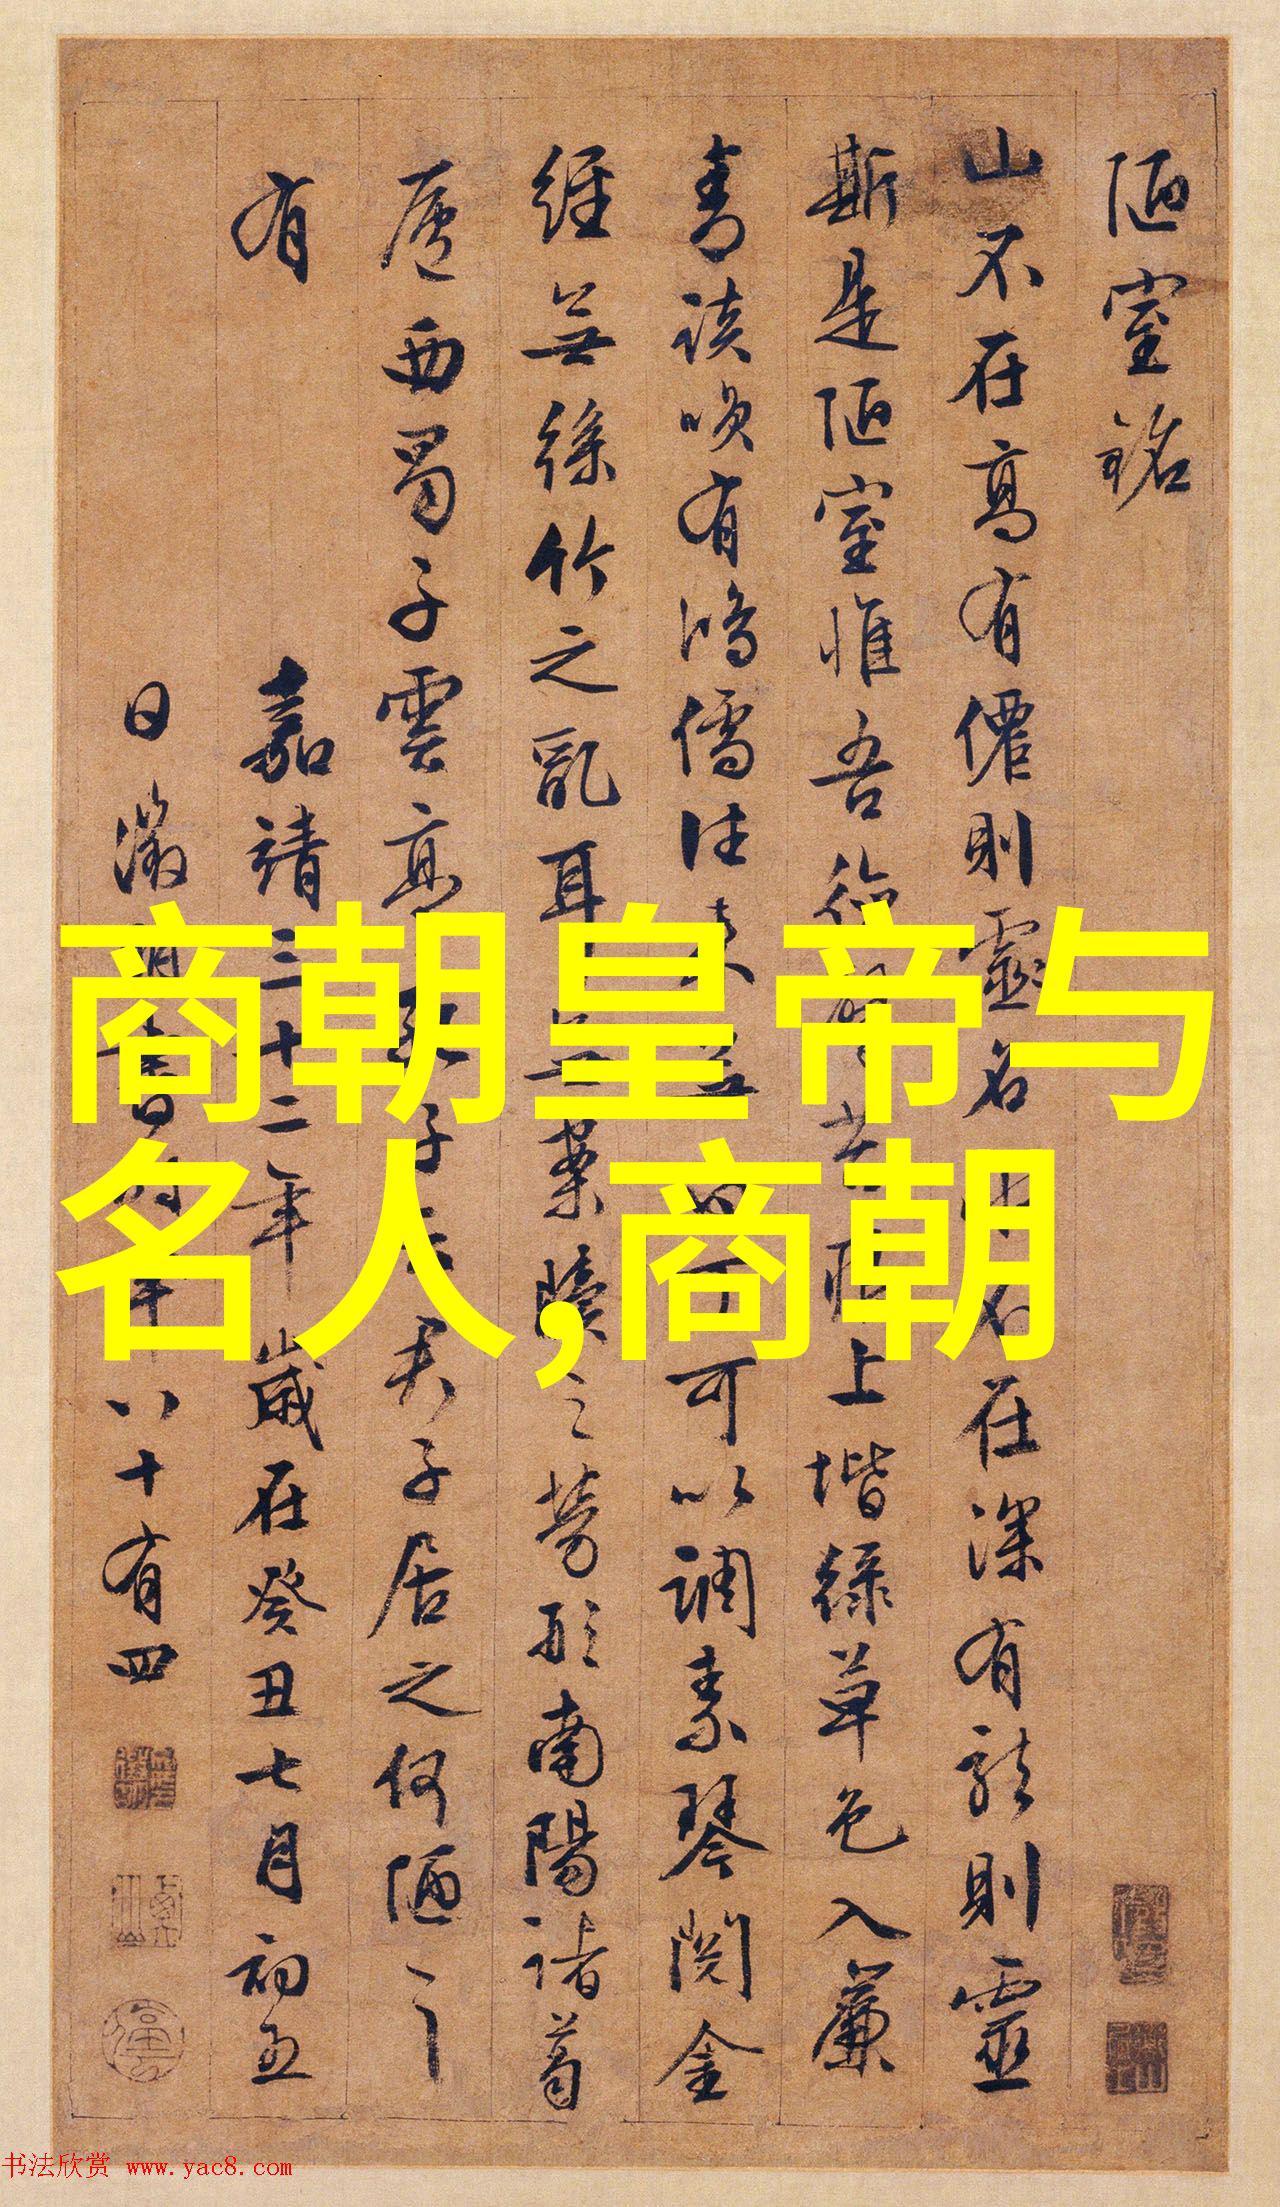 商朝皇帝与
名人,商朝
陋室銘
山不在高有僊則靈名不在深有龍則靈
斯是陋室惟吾德上堦綠草色入簾
有鴻儒往來可以調素琴閱金
經無絲竹之亂耳無案牘之勞形南陽諸葛
廬西蜀子雲亭子云君子居之何陋之
有
嘉靖三十二年歲在癸丑七月初五
日徵明書時年八十有四
书法欣赏 www.yac8.com